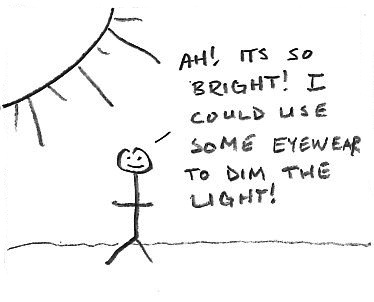 AH! ITS SO
BRIGHT! I
COULD USE
SOME EYEWEAR
TO DIM THE
LIGHT!